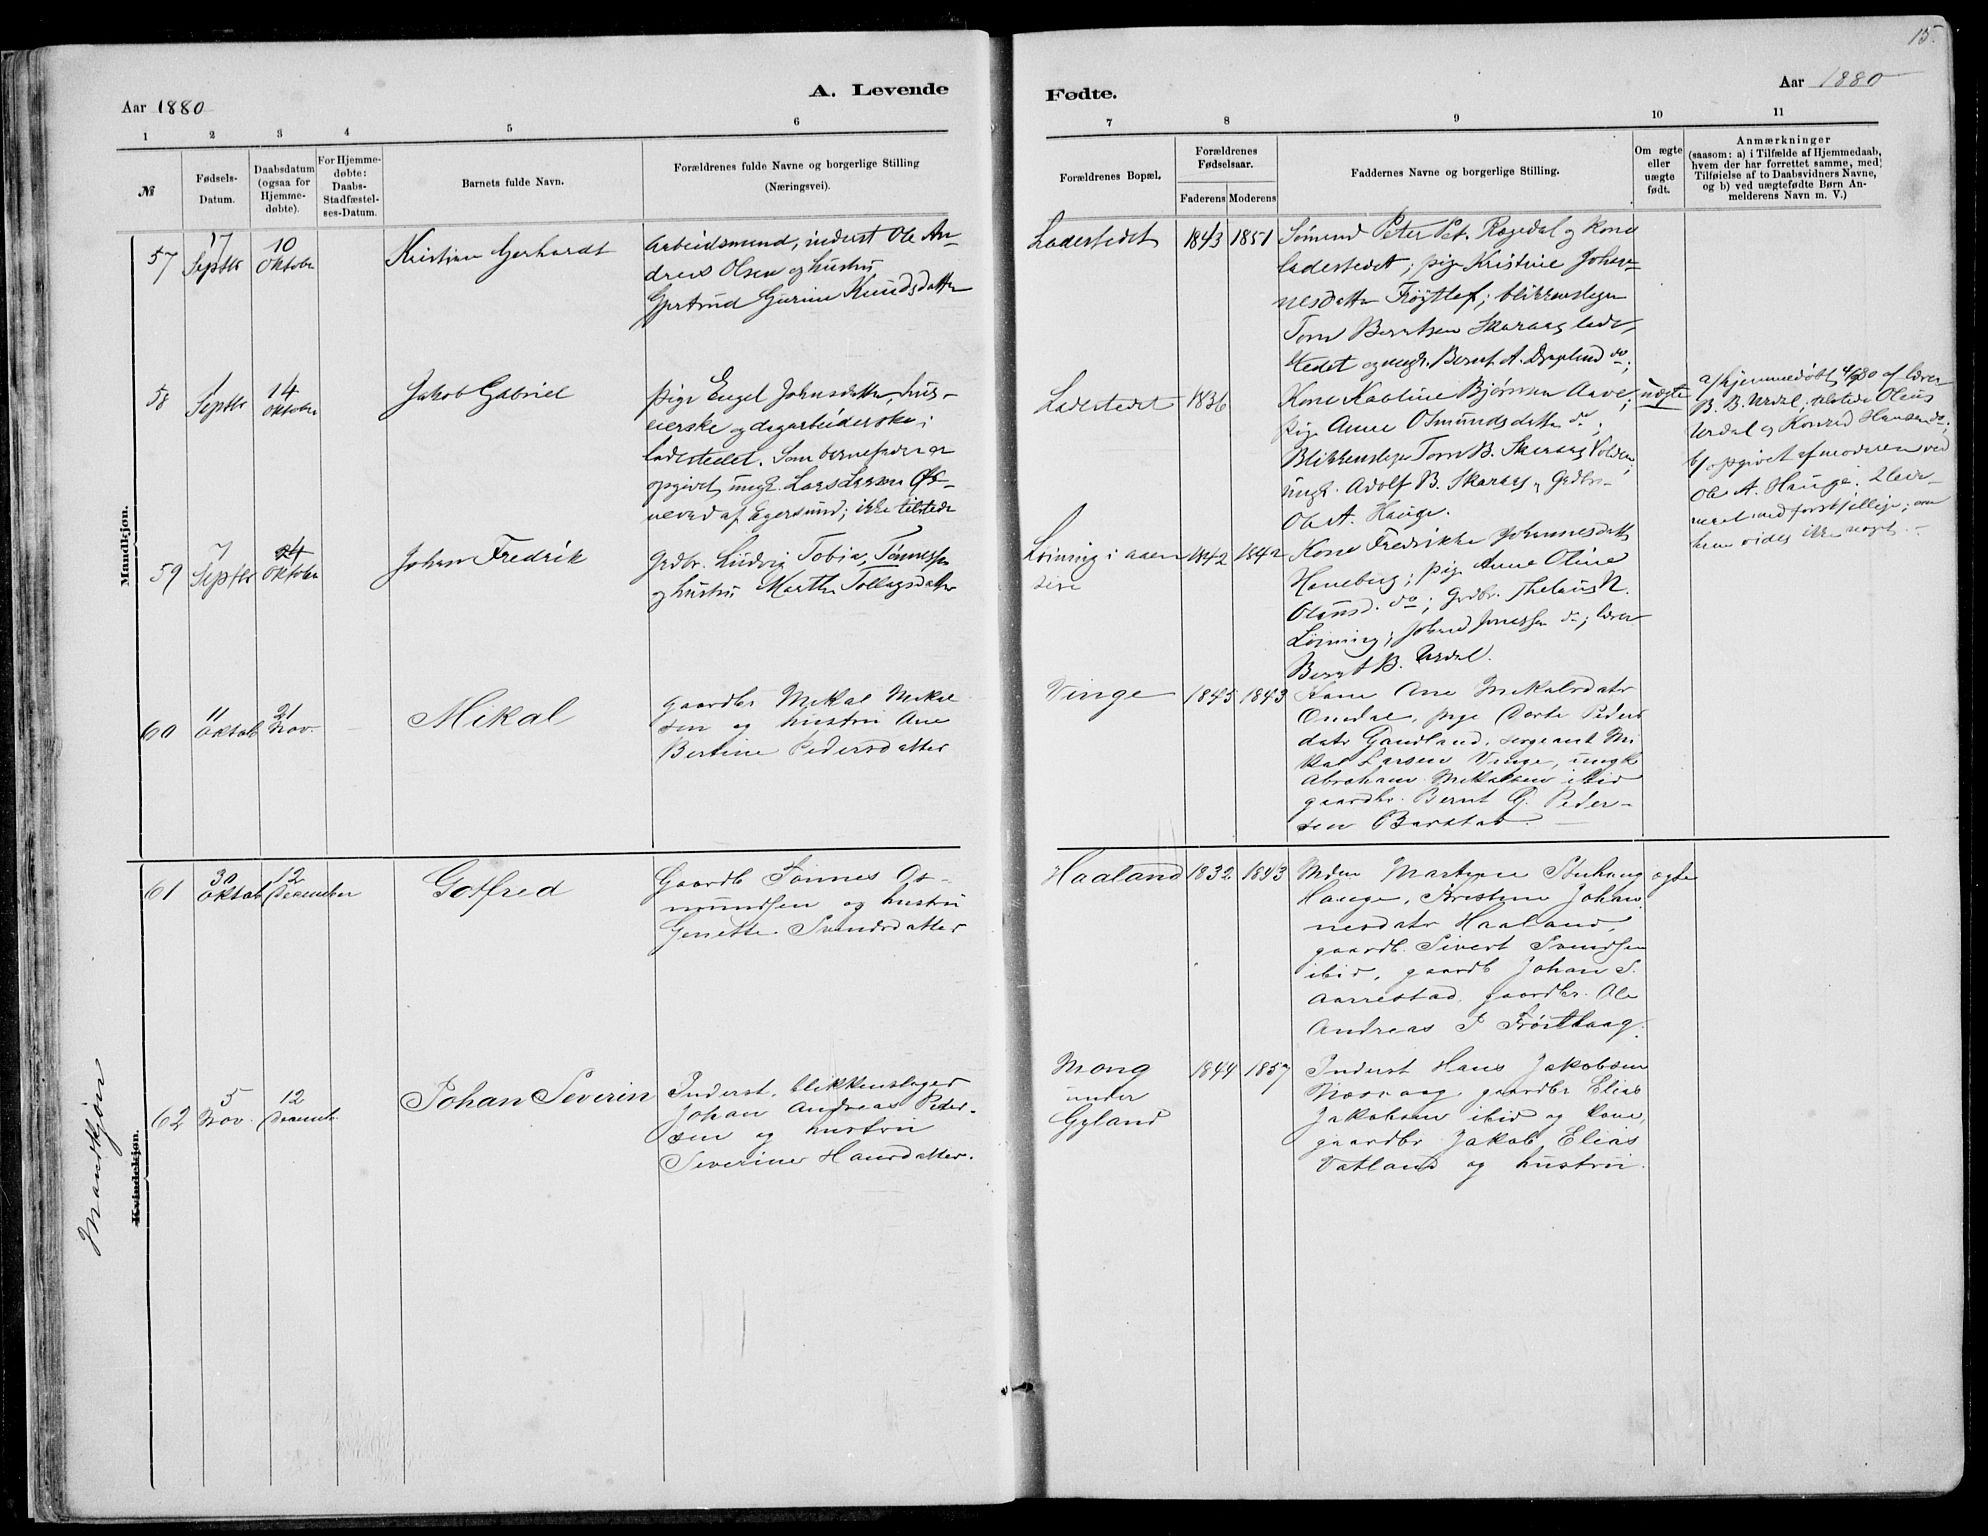 15.
Aar 1880
A. Levende
Fødte.
Aar 1880
1 2 3 4 5 6
7 8 9 10 11
№
Fødsels-
Datum.
Daabsdatum
(ogsaa for
Hjemme-
døbte).
For Hjemme-
døbte:
Daabs-
Stadfæstel-
ses-Datum.
Barnets fulde Navn.
Forældrenes fulde Navne og borgerlige Stilling
(Næringsvei).
Forældrenes Bopæl.
Forældrenes
Fødselsaar.
Faderens Moderens
Faddernes Navne og borgerlige Stilling.
Om ægte
eller
uægte
født.
Anmærkninger
(saasom: a) i Tilfælde af Hjemmedaab,
hvem der har forrettet samme, med
Tilføielse af to Daabsvidners Navne,
og b) ved uægtefødte Børn An-
melderens Navn m. V.)
Mandkjøn.
57
17
Septbr
10
Oktober
Kristian Gerhardt
Arbeidsmand, inderst Ole An-
dreas Olsen og hustru
Gjertrud Gurine Knudsdatter
Ladestedet
1843 1851
Sømand Peter Pet. Rægedal og kone
ladestedet; pige Kristine Johan-
nesdatter Frøytlog; blikkenslager
Tom Berntsen Skaraas lade-
stedet og ungk. Bernt A. Dypland do;
58
Septbr
14
Oktober
Jakob Gabriel
Pige Engel Johnsdatter, hus-
eierske og dagarbeiderske;
ladestedet. Som barnefader er
opgivet ungk. Lars Larsen
af Egersund; ikke tilstede
Ladestedet
1836
Kone Karline Bjørnsen Aave;
pige Anne Osmundsdatter do;
Blikkenslager Tom B. Skaraas Volden;
ungk. Adolf B. Skaraas, Grdbr.
Ole A. Hauge.
uægte
a/ hjemmedøbt 4/9 80 af lærer
B. B. Urdal; tilstede Olaus
Urdal og Konrad Hansen do;
b/ opgivet af moderen ved
Ole A. Hauge.
været med forskjellige; om
ham vides ikke noget.
59
7
Septbr
24
Oktober
Johan Fredrik
Grdbr. Ludvig Tobias Tønnessen
og hustru Marthe Tollagsdatter
Løining i Aaen
Sire
1842 1842
Kone Fredrikke Johannesdatt.
Haneberg; pige Anne Oline
Olausd. do; Grdbr. Thelaus N.
Løining; Johned Jonassen do; lærer
Bernt B. Urdal.
60
11
Oktob
21
Nov.
Mikal
Gaardbr Mikal Mikal
sen og hustru Ane
Bertine Pedersdatter
Vinge
1845 1843
Kone Ane Mikalsdatr
Omdal, pige Dorte Peders
datr Gandland, sergeant Mi
kal Larsen Vinge, ungk
Abraham Mikalsen ibid
gaardbr. Bernt G. Peder-
sen Barstad.
61
30
Oktob
12
December
Gotfred
Gaardb Tønnes Os-
mundsen og hustru
Genette Svendsdatter
Haaland
1832 1843
Mdm Martine Stuhaug
Hauge, Kristine Johan-
nesdatr Haaland,
gaardb. Sivert Svendsen
ibid, gaardb Johan S.
Aarrestad, gaardbr. Ole
Andreas P Frøitlaag.
ægte
Mandkjøn
Kvindekjøn.
62
5
Nov.
12
Decemb.
Johan Severin
Inderst, blikkenslager
Johan Andreas Peder-
sen og hustru
Severine Hansdatter.
Mong
under
Gyland
1844 1857
Inderst Hans Jakobsen
Nesvaag gaardbr Elias
Jakobsen ibid og kone,
gaardbr Jakob Elias
Vatland og hustru.